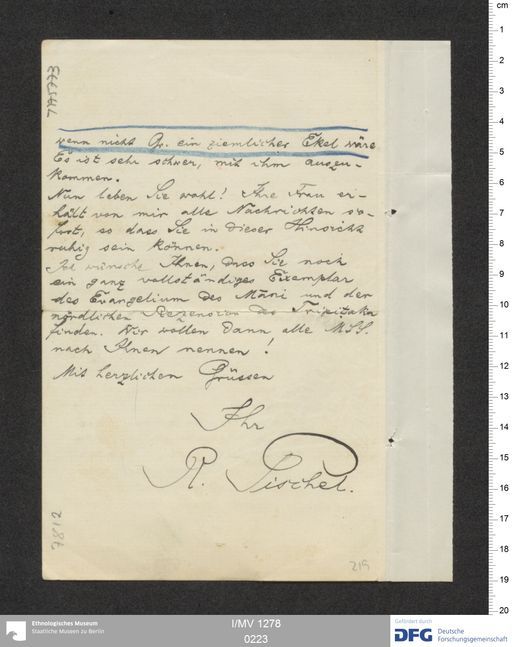 wenn nicht Gr. ein ziemlicher Ekel wäre.
Es ist sehr schwer, mit ihm auszu-
kommen.
Nun leben Sie wohl! Ihre Frau er-
hält von mir alle Nachrichten so-
fort, so dass Sie in dieser Hinsicht
ruhig sein können.
Ich wünsche Ihnen, dass Sie noch
ein ganz vollständiges Exemplar
des Evangelium des Mâni und der
nördlichen Rezension des Tripiṭaka
finden. Wir wollen dann alle MSS.
nach Ihnen nennen!
Mit herzlichen Grüssen
Ihr
R. Pischel.
7812
219
Ethnologisches Museum
Staatliche Museen zu Berlin
I/MV 1278
0223
Gefördert durch
DFG Deutsche
Forschungsgemeinschaft
cm
1
2
3
4
5
6
7
8
9
10
11
12
13
14
15
16
17
18
19
20